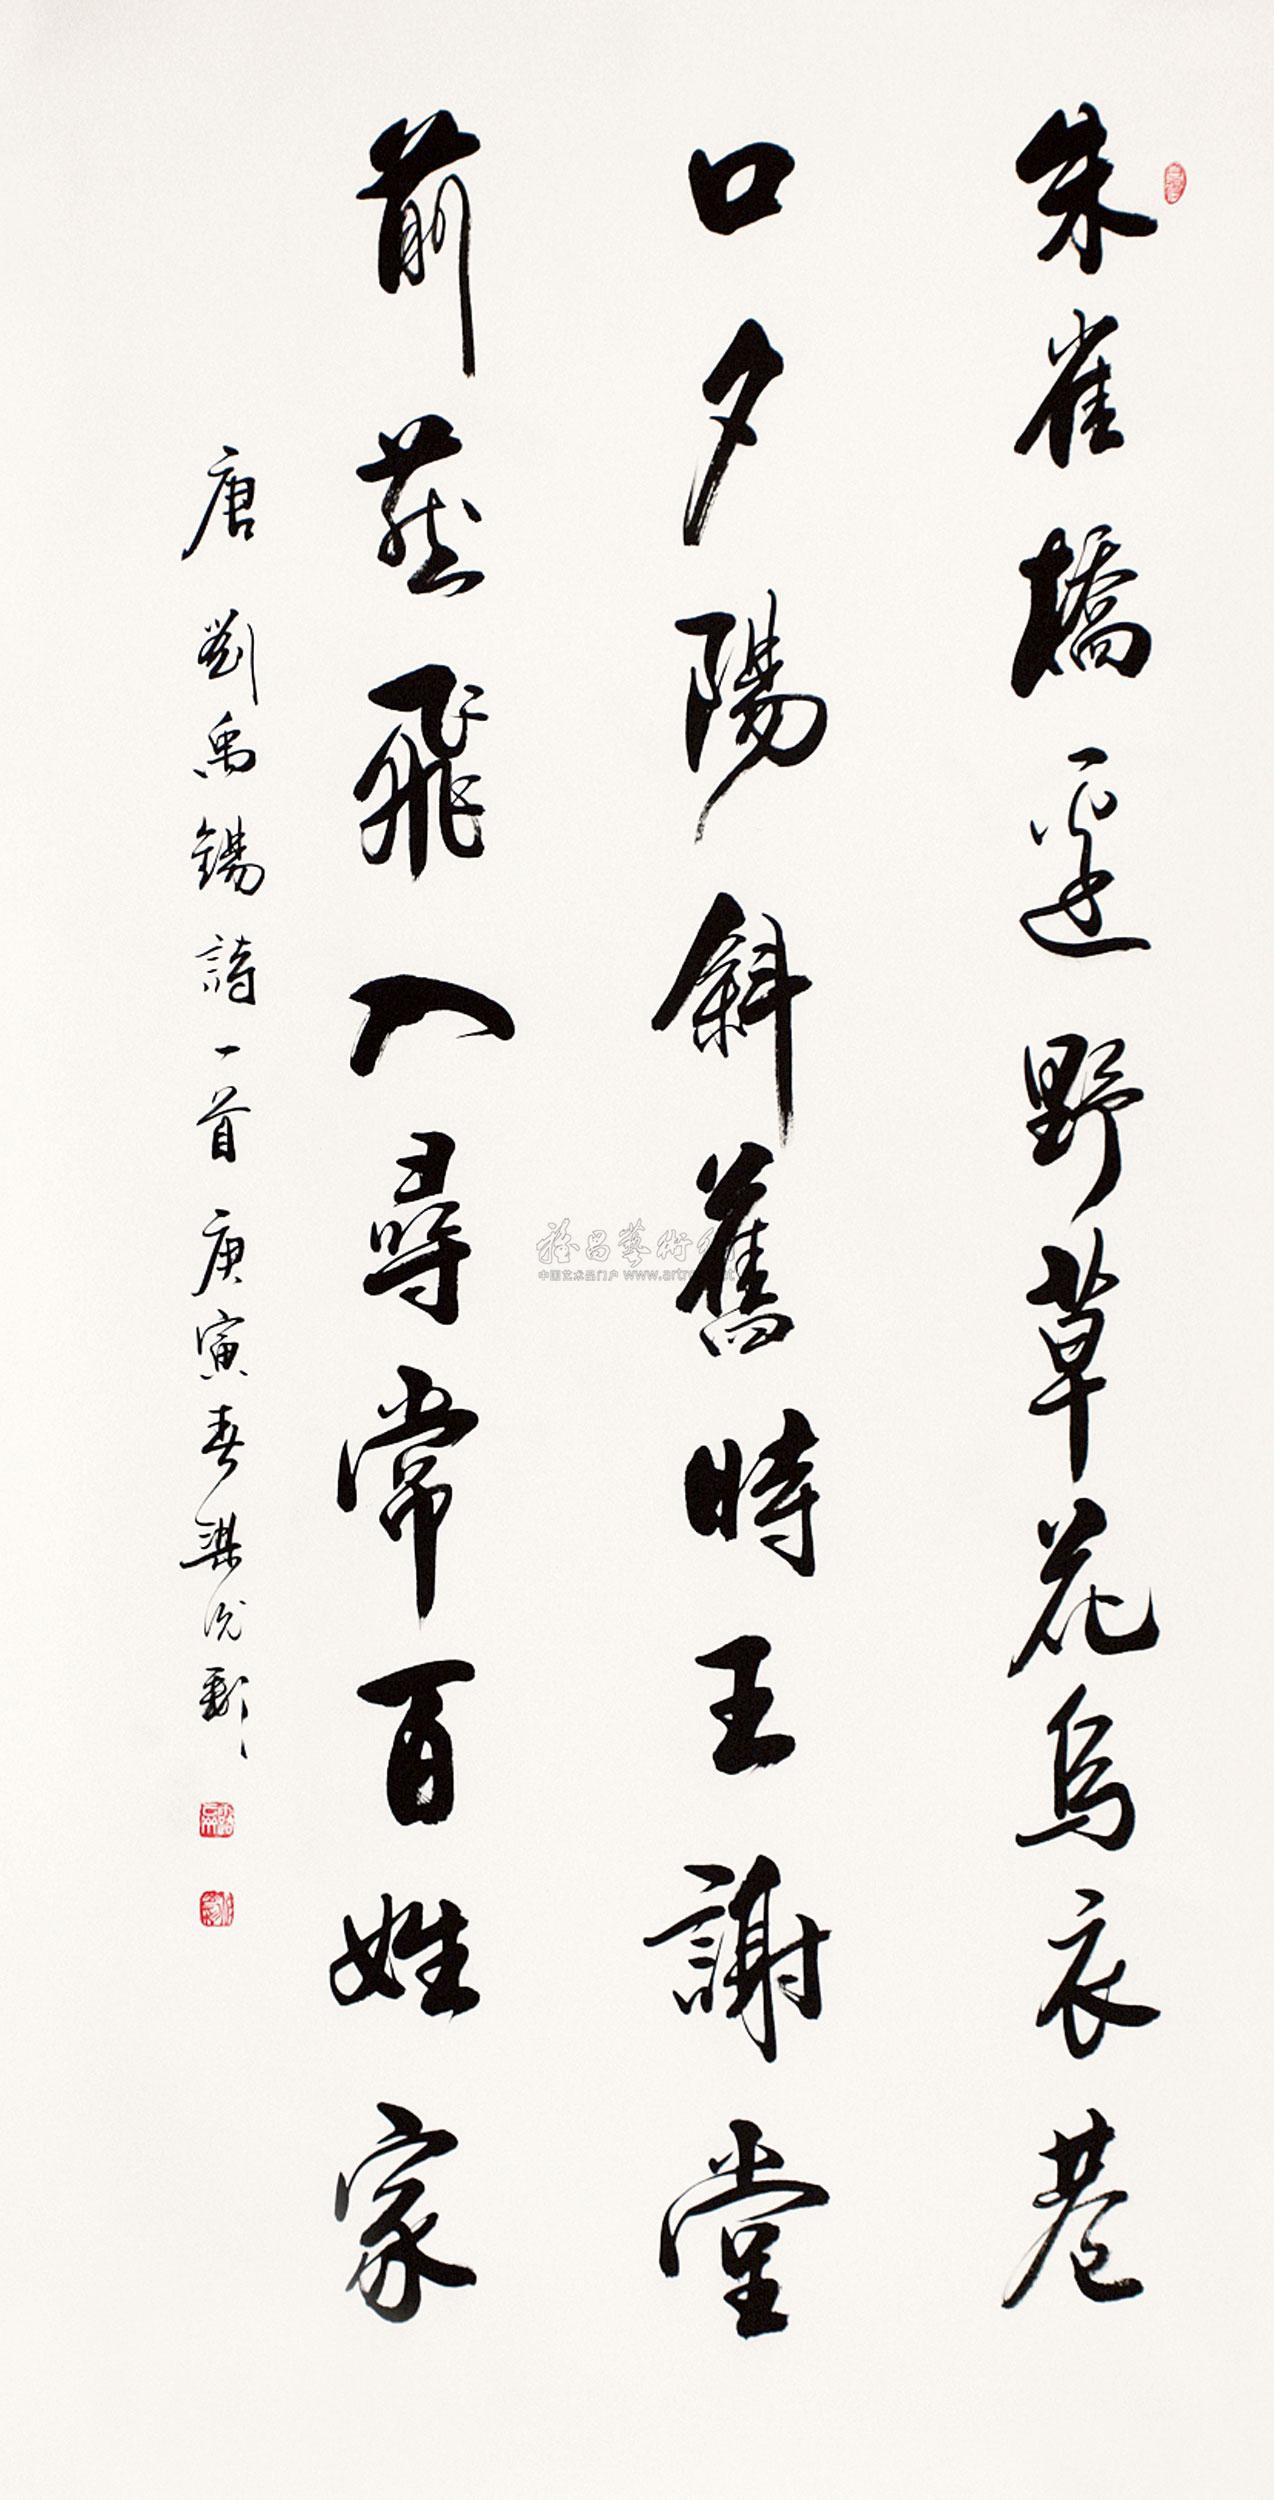 朱雀橋邊野草花烏衣巷
口夕陽斜舊時王謝堂
前燕飛入尋常百姓家
唐劉禹錫詩一首庚寅春
雅昌藝術網
中国艺术品门户 www.artron.net